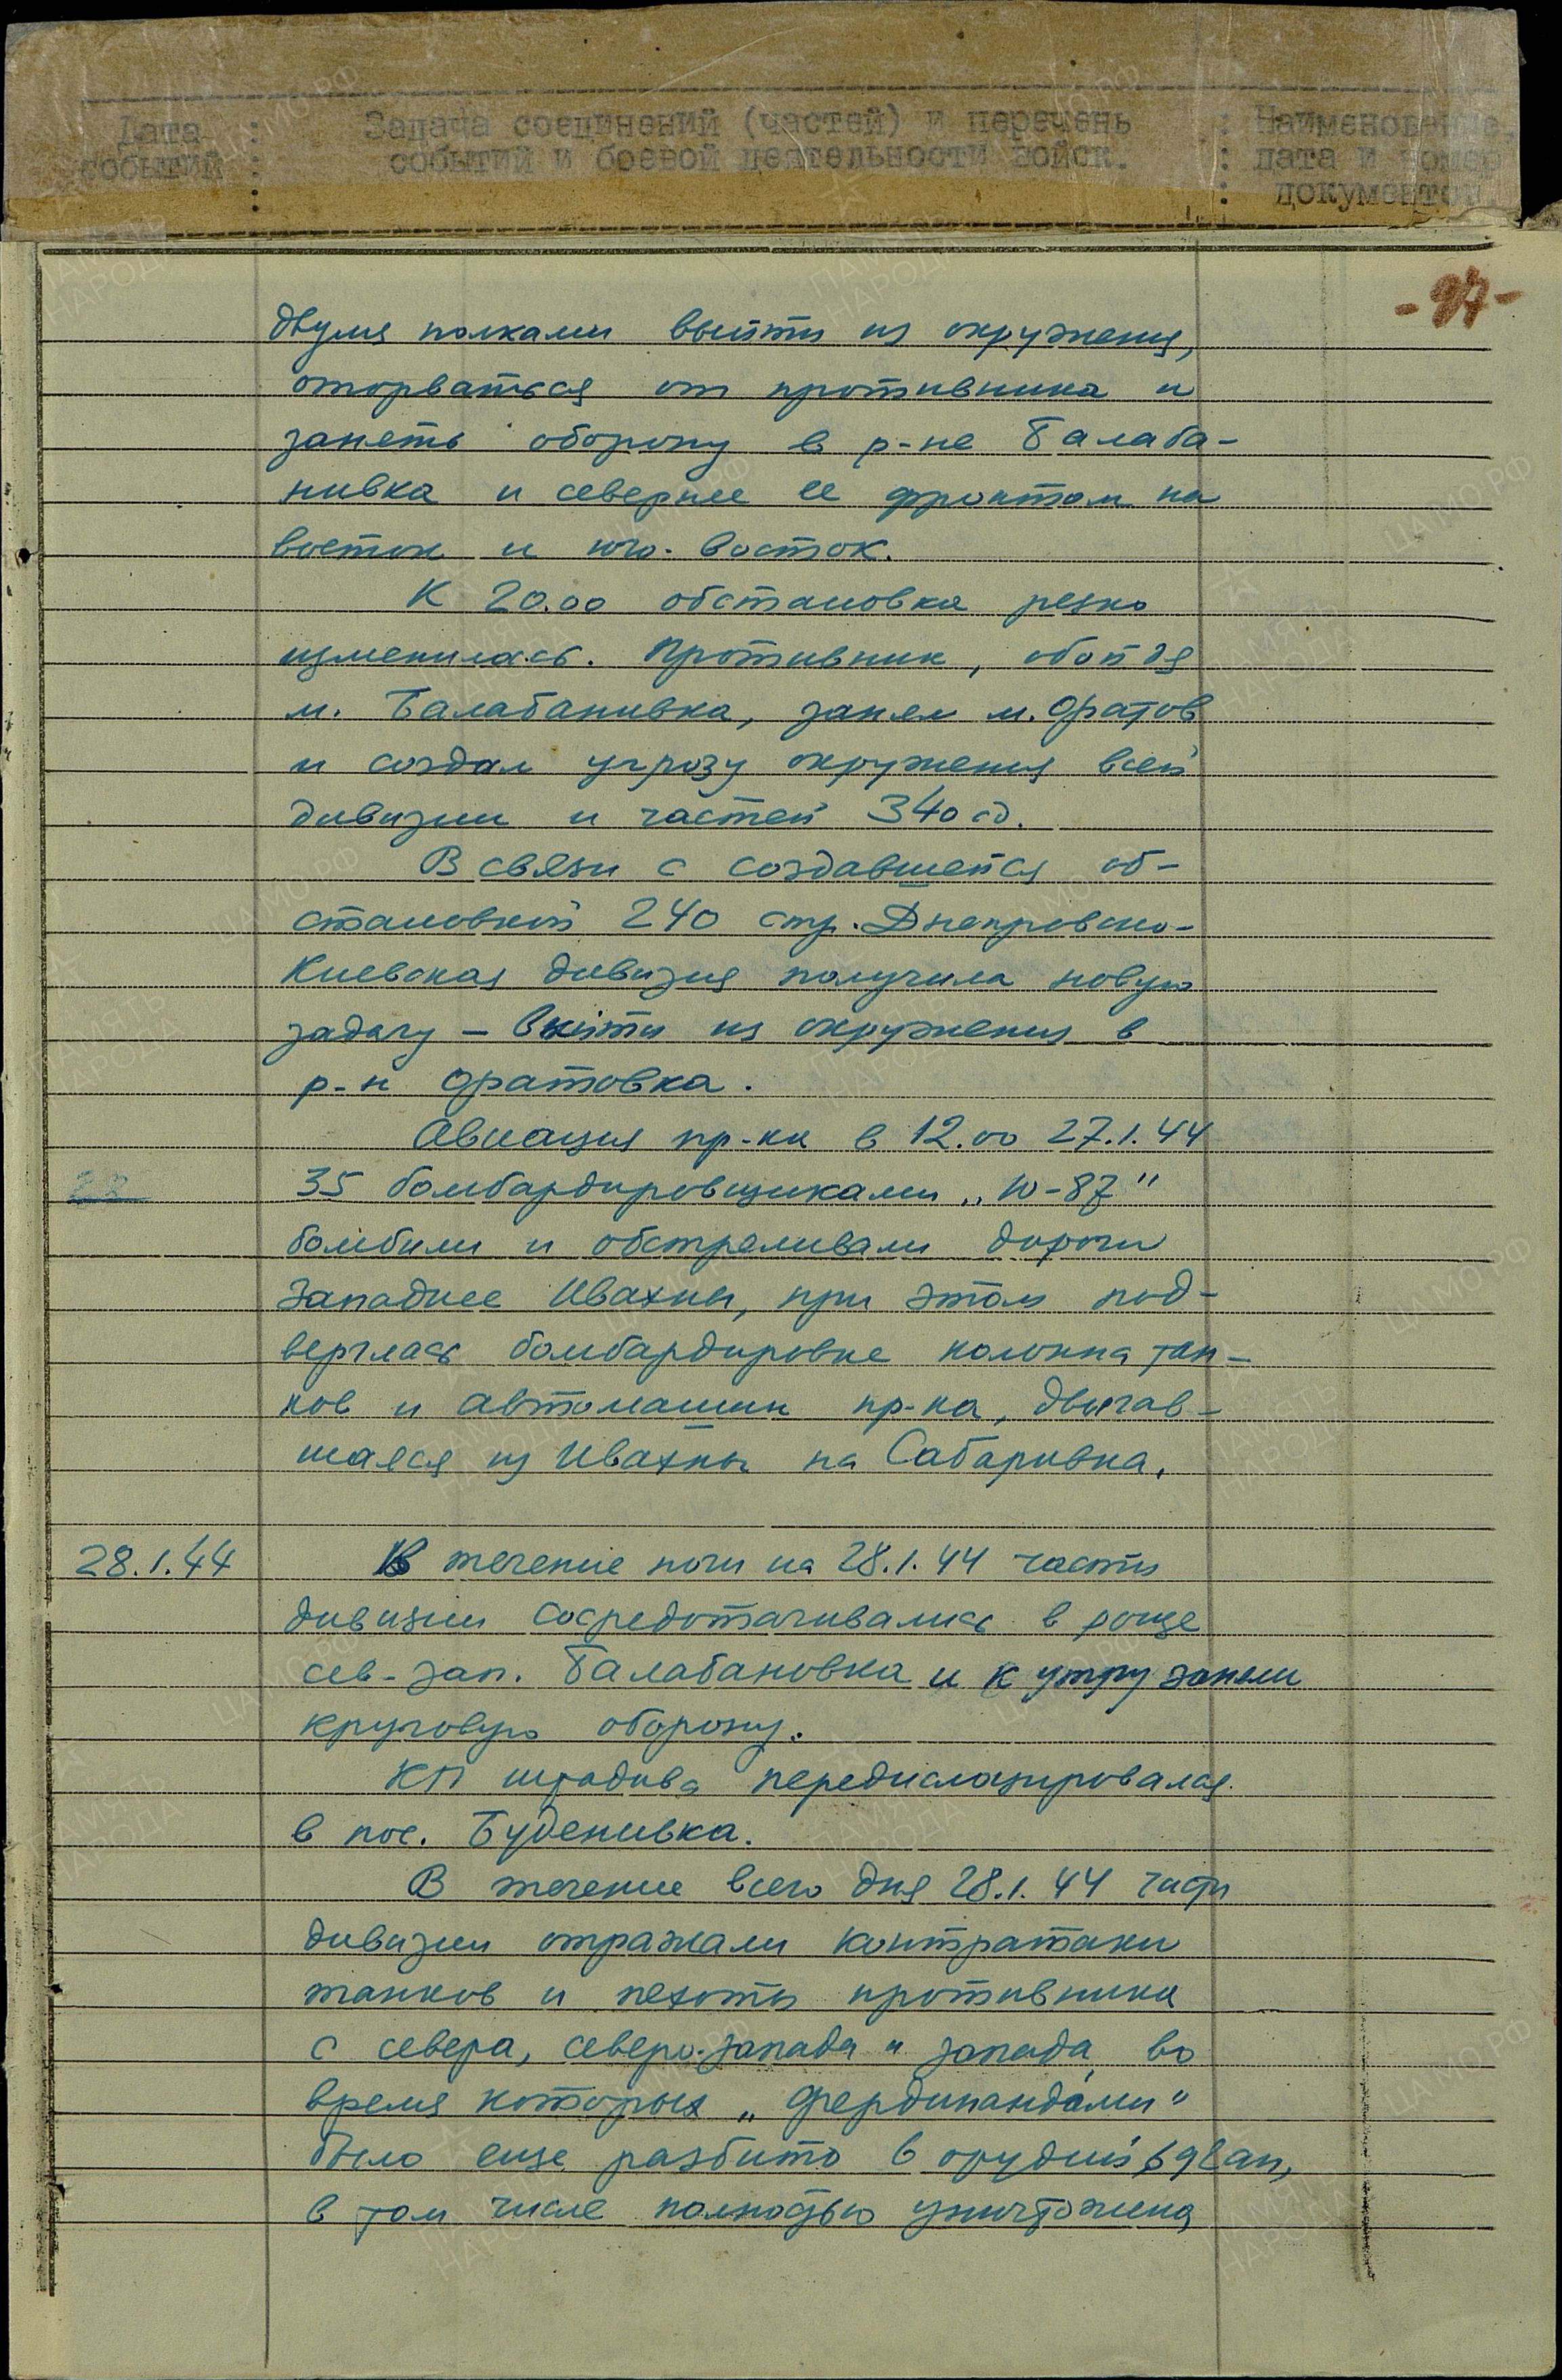 Дата : Задача соединений (частей) и перечень : Наименование,
событий : событий и боевой деятельности войск. : дата и номер
: : документов.
- 97 -
двумя полками выйти из окружения,
оторваться от противника и
занять оборону в р-не Балаба-
нивка и севернее ее фронтом на
восток и юго-восток.
К 20.00 обстановка резко
изменилась. Противник, обойдя
м. Балабанивка, занял м. Оратов
и создал угрозу окружения всей
дивизии и частей 340 сд.
В связи с создавшейся об-
становкой 240 стр. Днепровско-
Киевская дивизия получила новую
задачу – выйти из окружения в
р-н Оратовка.
Авиация пр-ка в 12.00 27.1.44
35 бомбардировщиками „Ю-87"
бомбили и обстреливали дороги
западнее Ивахны, при этом под-
верглась бомбардировке колонна тан-
ков и автомашин пр-ка, двигав-
шаяся из Ивахны на Сабаривка.
28.1.44 В течение ночи на 28.1.44 части
дивизии сосредотачивались в роще
сев-зап. Балабановка и к утру заняли
круговую оборону.
КП штадива передислоцировался
в пос. Буденивка.
В течение всего дня 28.1.44 части
дивизии отражали контратаки
танков и пехоты противника
с севера, северо-запада и запада, во
время которых „Фердинандами"
было еще разбито 6 орудий ап,
в том числе полностью уничтожена